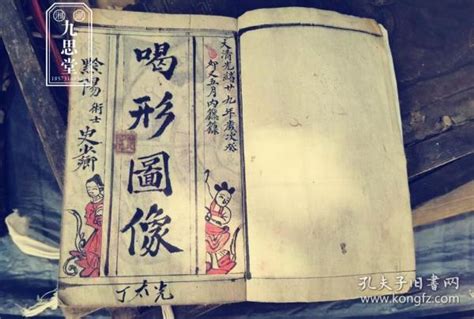 大清光緒廿九年歲次癸
卯又五月內錄
喝形圖像
黔陽術士史卿
丁太光
九思堂
孔夫子旧书网
www.kongfz.com